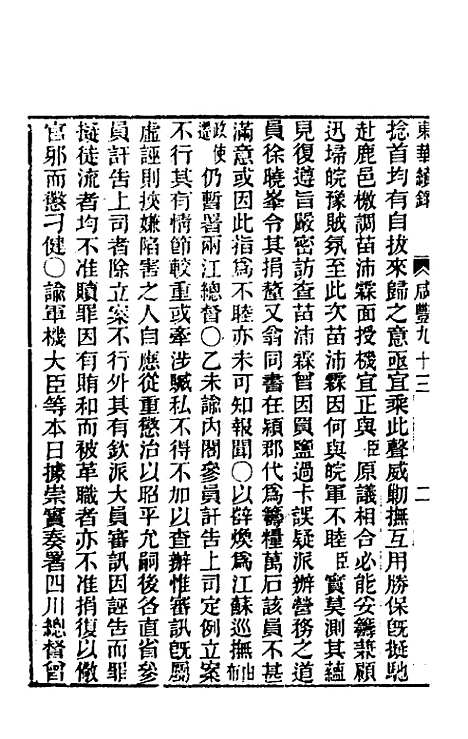 東華續錄　咸豐九十三　二
捻首均有自拔來歸之意亟宜乘此聲威勦撫互用勝保旣擬馳
赴鹿邑檄調苗沛霖面授機宜正與臣原議相合必能妥籌兼顧
迅埽皖豫賊氛至此次苗沛霖因何與皖軍不睦臣實莫測其蘊
見復遵旨嚴密訪查苗沛霖曾因買鹽過卡誤疑派辦營務之道
員徐曉峯令其捐釐又翁同書在潁郡代爲籌糧萬石該員不甚
滿意或因此指爲不睦亦未可知報聞〇以薛煥爲江蘇巡撫由布
政使
遷仍暫署兩江總督〇乙未諭內閣參員訐告上司定例立案
不行其有情節較重或牽涉贓私不得不加以查辦惟審訊旣屬
虛誣則挾嫌陷害之人自應從重懲治以昭平允嗣後各直省參
員訐告上司者除立案不行外其有欽派大員審訊因誣告而罪
擬徒流者均不准贖罪因有賄和而被革職者亦不准捐復以儆
官邪而懲刁健〇諭軍機大臣等本日據崇實奏署四川總督曾